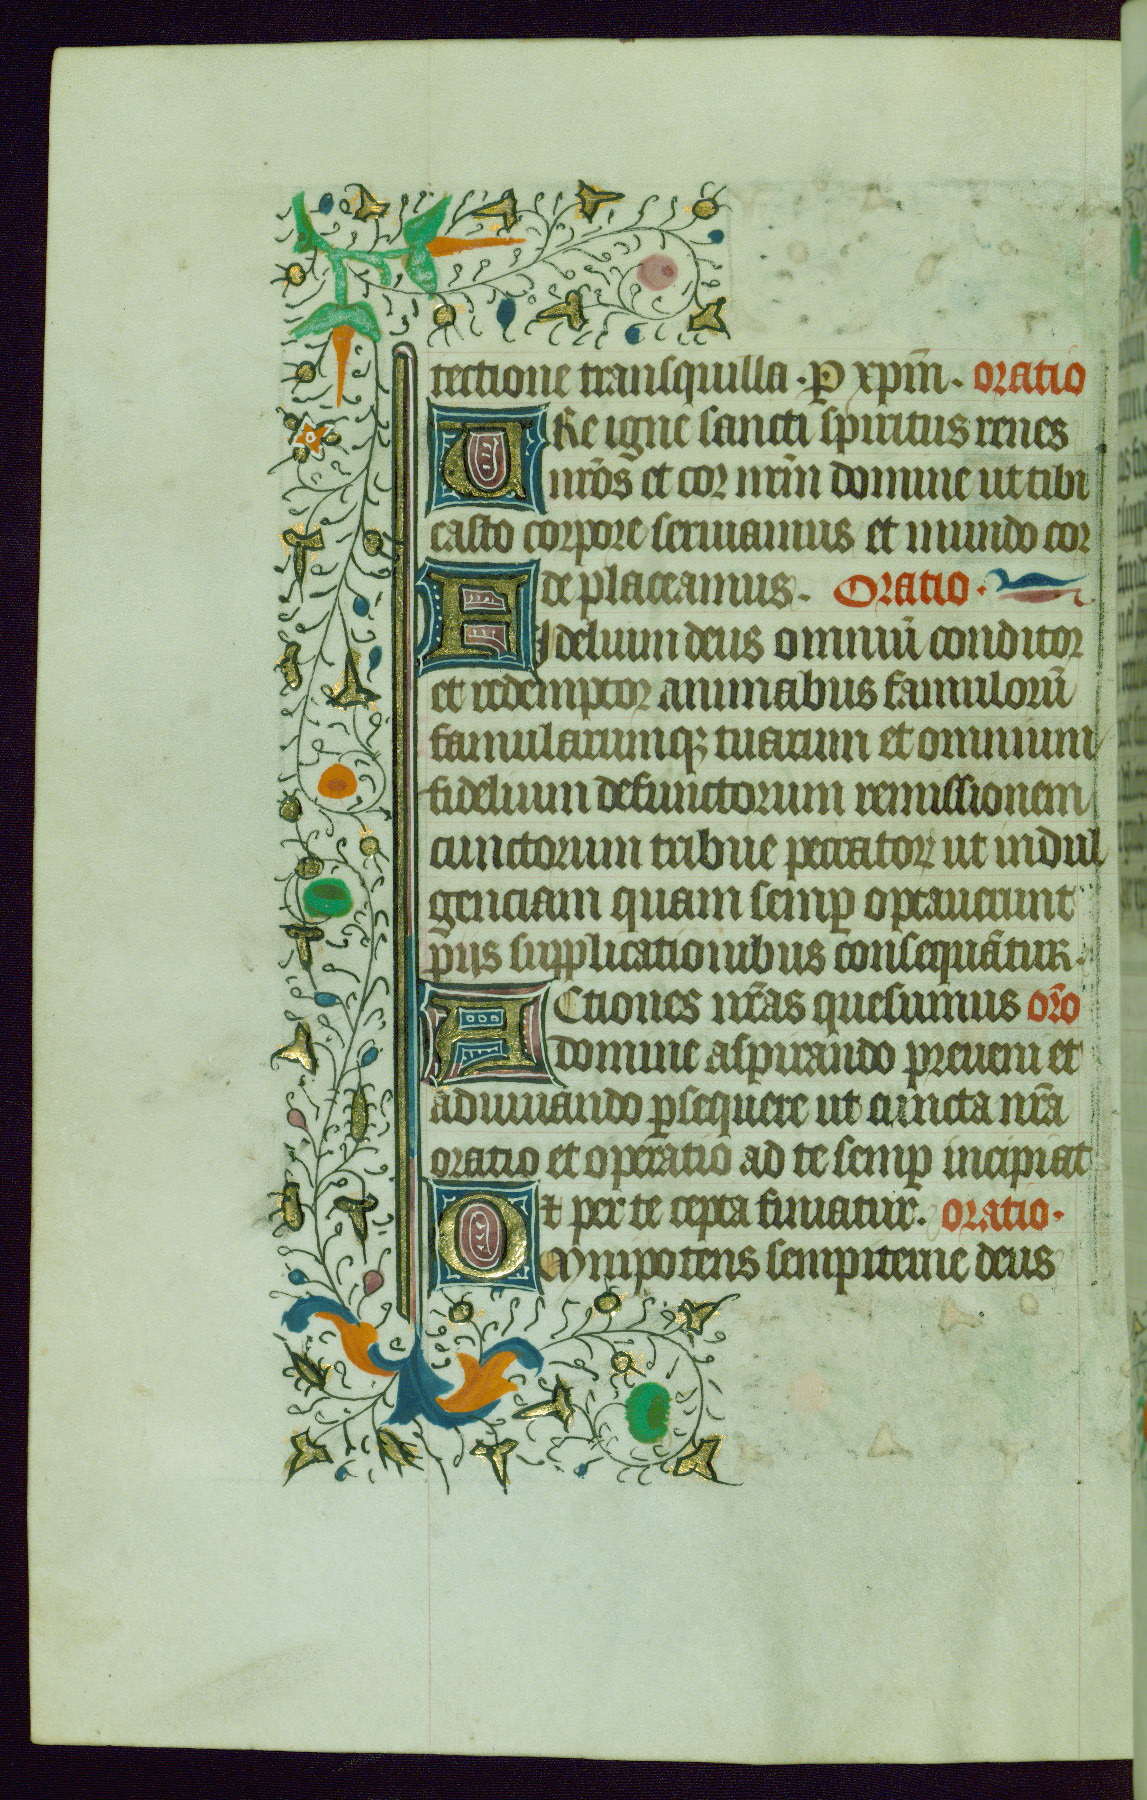 tectione tranſquilla · ꝑ xp̄m̄ . oratio
URe igne ſancti ſpiritus renes
nr̄os et cor nr̄m domine ut tibi
caſto corpore ſeruiamus et mundo cor
de placeamus . Oratio .
FIdelium deus omniū conditor
et redemptor animabus famulorū
famularumqꝫ tuarum et omnium
fidelium defunctorum remiſſionem
cunctorum tribue peccatoꝝ ut indul
genciam quam ſemꝑ optauerunt
piis ſupplicationibus conſequātur .
ACtiones nr̄as queſumus or̄o
domine aſpirando preueni et
adiuuando ꝓſequere ut cuncta nr̄a
oratio et operatio ad te ſemꝑ incipiat
et per te cepta finiatur . oratio .
Omnipotens ſempiterne deus